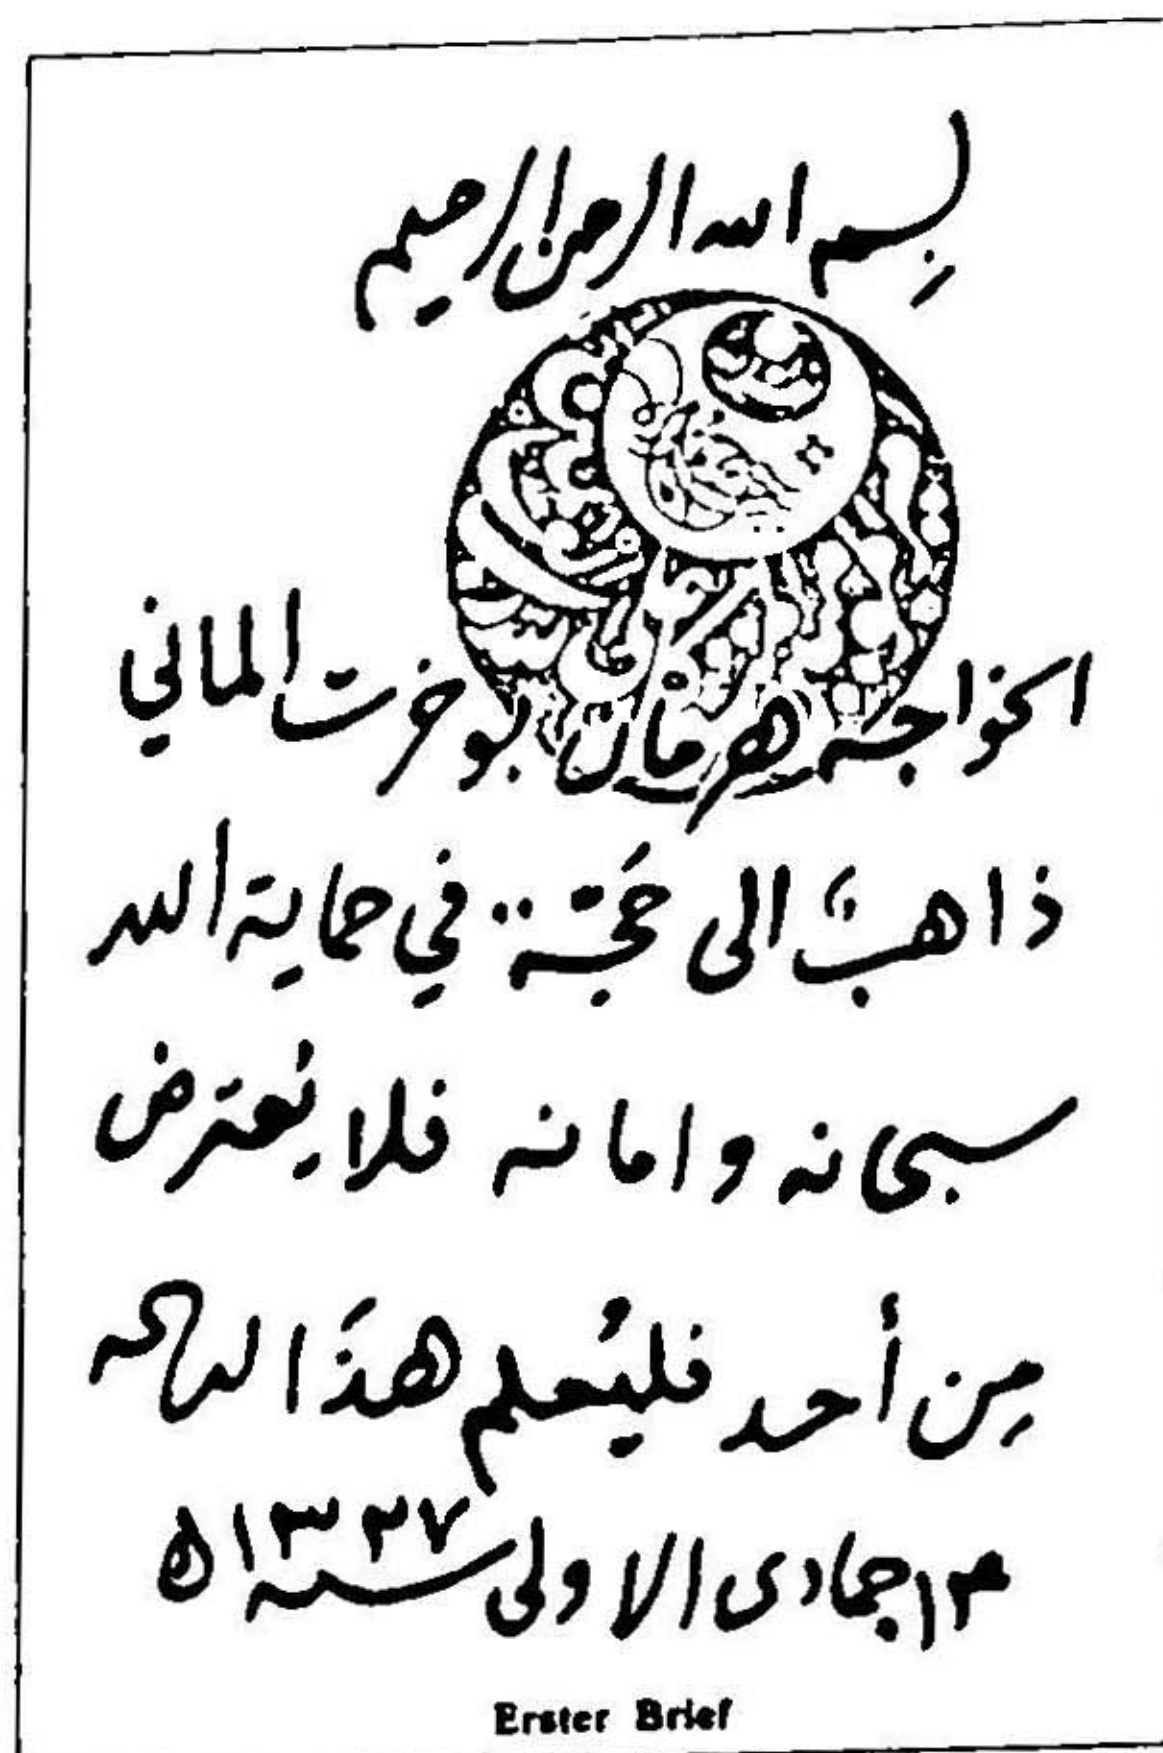 بِسم الله الرحمن الرحيم
الخواجه هرمان بوخرت الماني
ذاهبً الى حَجّة في حماية الله
سبحانه وامانه فلا يُعترض
مِن أحد فليُعلم هذَا
١٣ جمادى الاولى سنه ١٣٢٧ ه
Erster Brief